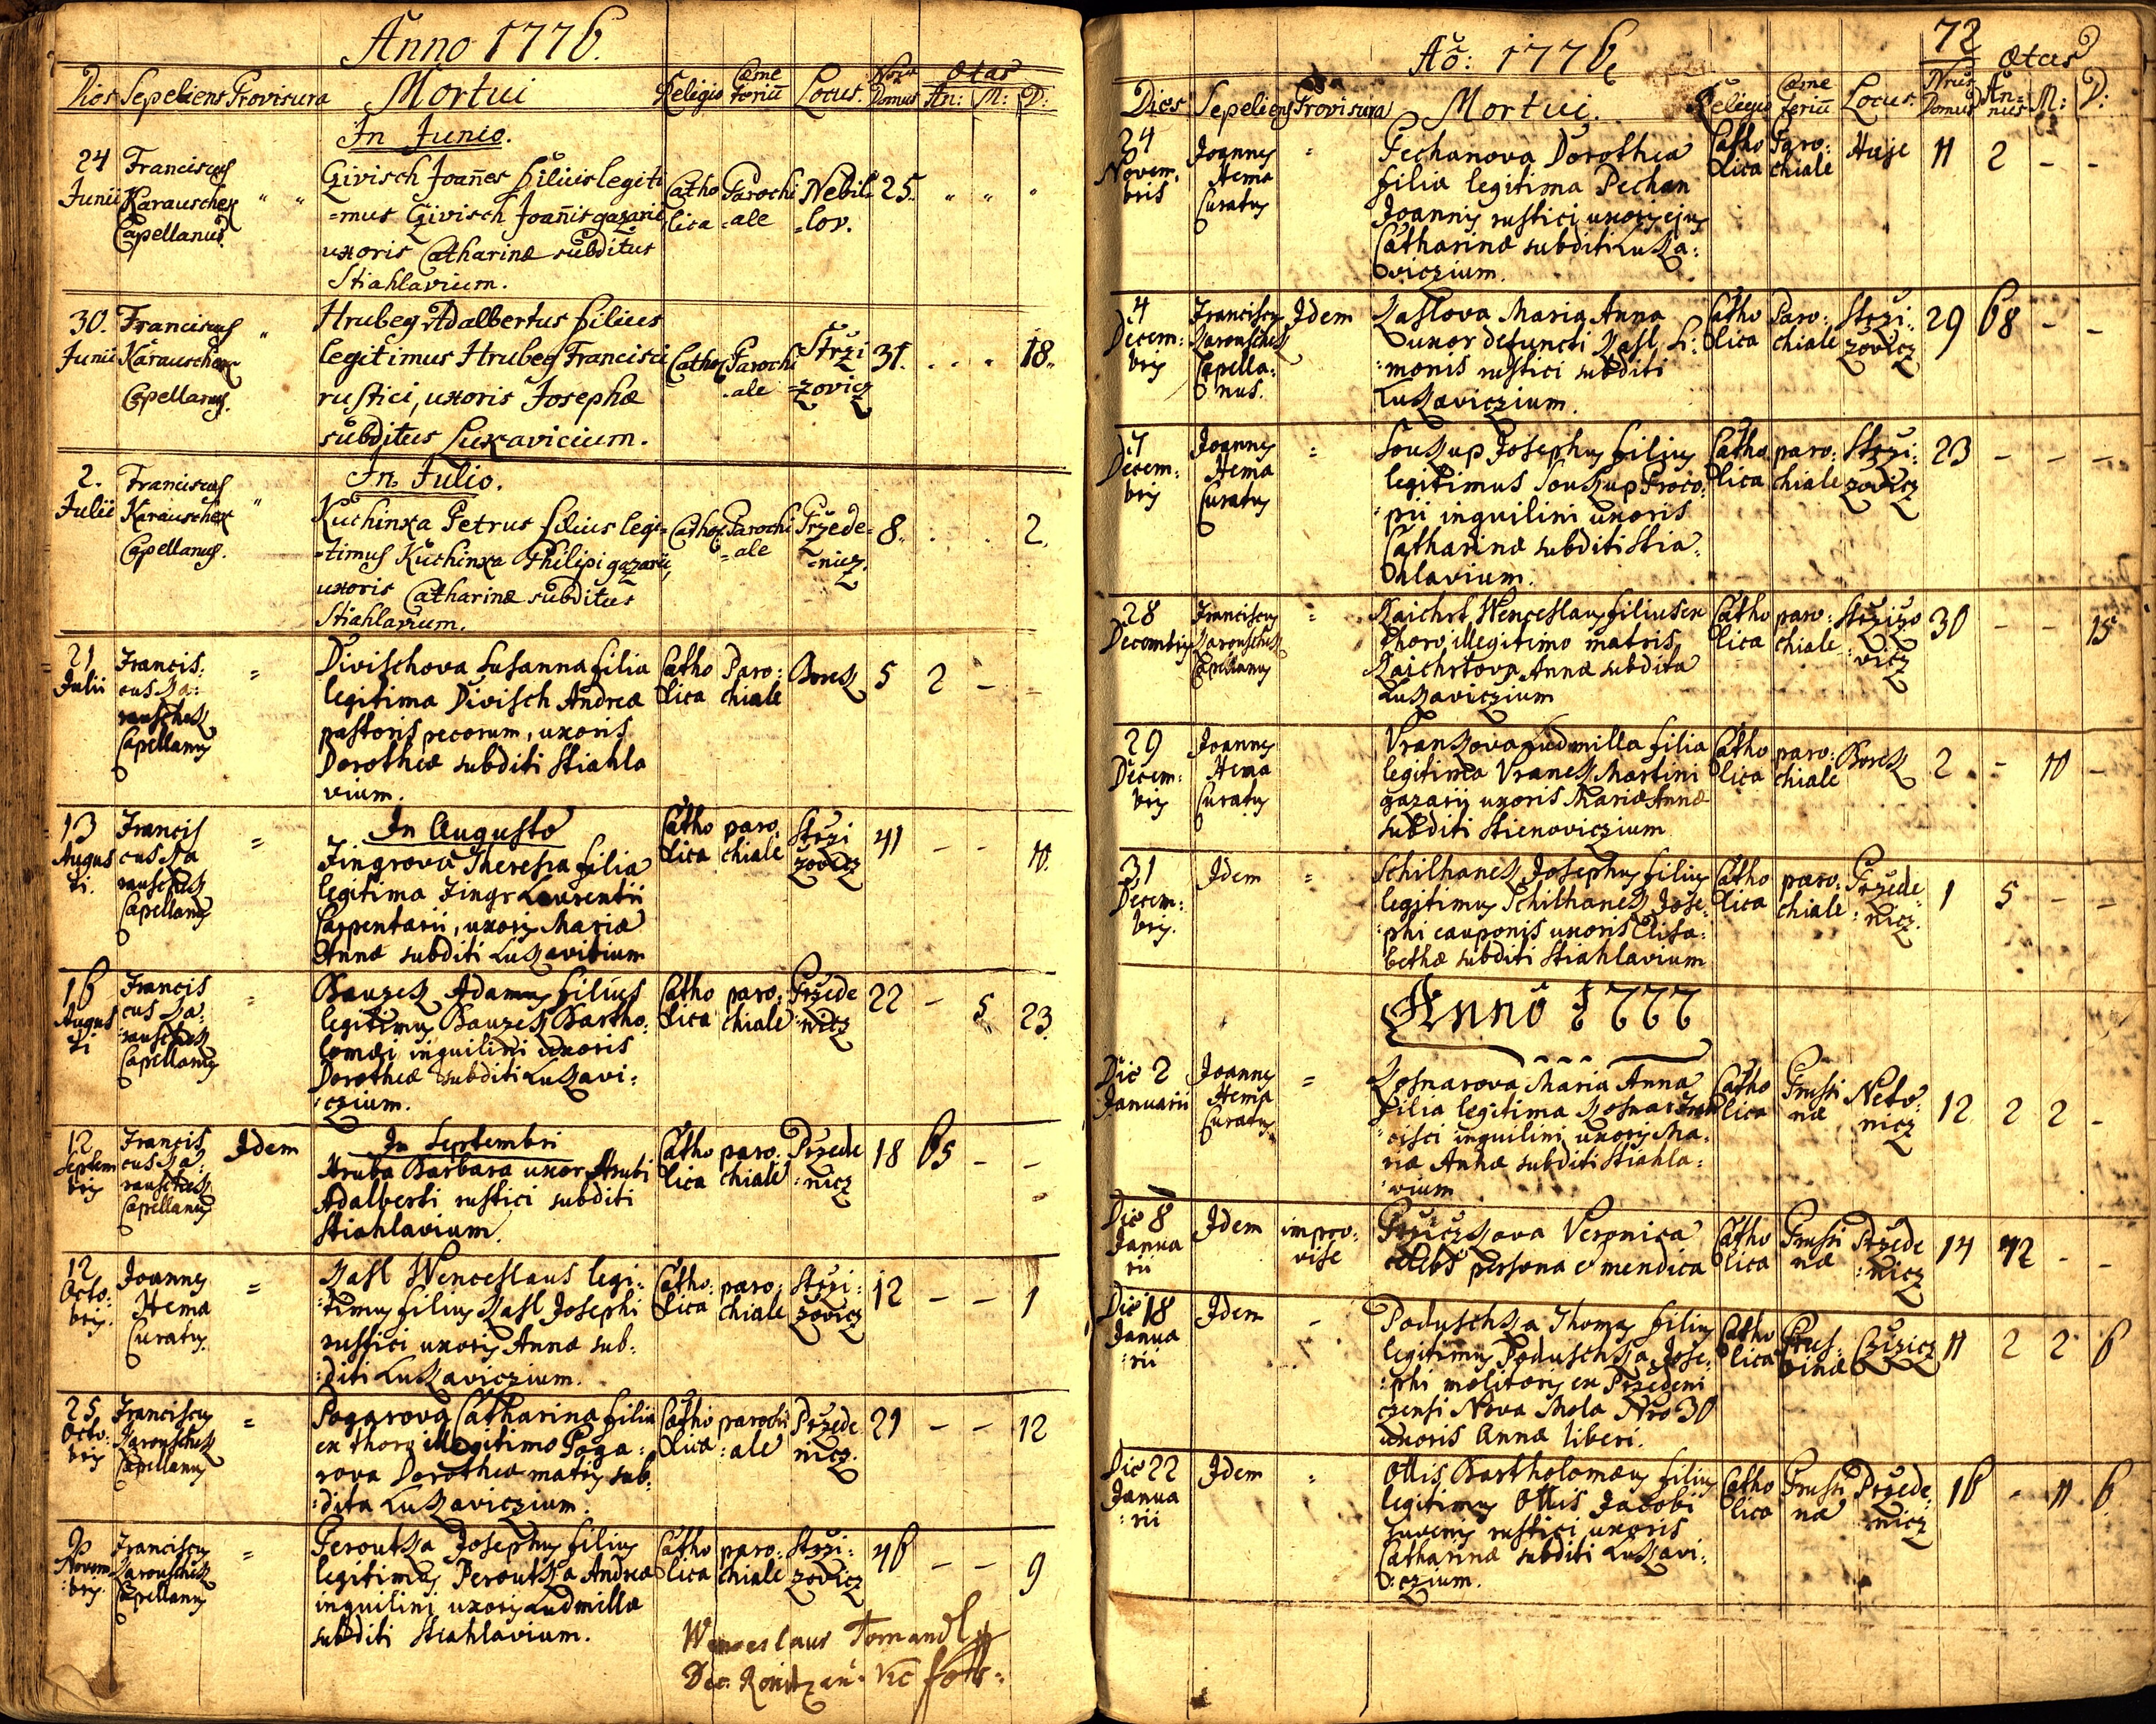 Anno 1776.
Dies Sepeliens Provisura Mortui Religio Cæme teriū Locus. Nrus Domus Ætas An: M: D:
In Junio.
24 Junii Franciscus Karauschek Capellanus.
Givisch Joañes filius legiti
=mus Givisch Joañis gazarii
uxoris Catharinæ subditus
Stiahlavium.
Catho lica Parochi =ale Nebil =lov. 25.
30. Junii Franciscus Karauschek Capellanus.
Hrubeg Adalbertus filius
legitimus Hrubeg Francisci
rustici, uxoris Josephæ
subditus Lukavicium.
Cathol Parochi =ale Strži =zovicz 31. 18.
In Julio.
2. Julii Franciscus Karauschek Capellanus.
Kuchinka Petrus filius legi=
=timus Kuchinka Philipi gazarii,
uxoris Catharinæ subditus
Stiahlavium.
Cathol Parochi =ale Pržede =nicz. 8. 2.
21 Julii Francis: cus Ka: rauschek Capellanus =
Divischova Susanna filia
legitima Divisch Andreæ
pastoris pecorum, uxoris
Dorotheæ subditi Stiahla
vium.
Catho lica Paro: chiale Borek 5 2 – –
13 Augus ti. Francis cus Ka rauschek Capellanus =
In Augusto
Jingrova Theresia filia
legitima Jingr Laurentii
Carpentarii, uxoris Mariæ
Annæ subditi Lukavitium
Catho lica paro: chiale Strzi zovicz 41 – – 10.
16 Augus ti Francis cus Ka: rauschek Capellanus =
Bauzek Adamus filius
legitimus Bauzek Bartho:
lomæi inquilini uxoris
Dorotheæ subditi Lukavi:
:czium.
Catho lica paro: chiale Pržede :nicz 22 – 5 23.
12 Septem bris Francis cus Ka: rauschek Capellanus Idem
In Septembri
Hruba Barbara uxor Hrubi
Adalberti rustici subditi
Stiahlavium.
Catho lica paro: chiale Przede :nicz 18 65 – –
12 Octo: bris. Joannes Hema Curatus. =
Kasl Wenceslaus legi:
:timus filius Kasl Josephi
rustici uxoris Annæ sub:
:diti Lukaviczium.
Catho: lica paro: chiale Strzi: zovicz 12 – – 1
25 Octo: bris Franciscus Karouschek Capellanus =
Pogarova Catharina filia
ex thoro illegitimo Poga:
rova Dorothea matris sub:
:dita Lukaviczium.
Catho lica parochi :ale Pržede nicz. 21 – – 12
9 Novem :bris Franciscus Karouschek Capellanus =
Peroutka Josephus filius
legitimus Peroutka Andreæ
inquilini uxoris Ludmillæ
subditi Stiahlavium.
Catho lica paro: chiale Strzi: zovicz 46 – – 9
Wenceslaus Tomandl
Dec: Vic
72
Aō: 1776
Dies Sepeliens Provisura Mortui. Religio Cæme teriū Locus. Nrus Domus Ætas An= nus M: D:
24 Novem: bris Joannes Hema Curatus =
Pechanova Dorothea
filia legitima Pechan
Joannis rustici uxoris ejus
Catharinæ subditi Luka:
viczium.
Catho lica Paro: chiale Huje 11 2 – –
4 Decem: bris Franciscus Karouschek Capella: nus. Idem
Kaslova Maria Anna
uxor defuncti Kasl Si:
:monis rustici subditi
Lukaviczium.
Catho lica Paro: chiale Strzi: zovicz 29 68 – –
7 Decem: bris Joannes Hema Curatus =
Soukup Josephus filius
legitimus Soukup Proco:
pii inquilini uxoris
Catharinæ subditi Stia:
hlavium.
Catho lica paro: chiale Strzi: zovicz 23 – – –
28 Decembris Franciscus Karouschek Capellanus =
Raichrt Wenceslaus filius ex
thoro illegitimo matris
Raichrtova Annæ subdita
Lukaviczium
Catho lica paro: chiale Stržizo vicz 30 – – 15
29 Decem: bris Joannes Hema Curatus
Vrankova Ludmilla filia
legitima Vranek Martini
gazarii uxoris Mariæ Annæ
subditi Stienoviczium
Catho lica paro: chiale Borek 2 – 10 –
31 Decem: bris. Idem =
Schilhanek Josephus filius
legitimus Schilhanek Jose:
:phi cauponis uxoris Elisa:
bethæ subditi Stiahlavium
Catho lica paro: chiale Pržede: nicz. 1 5 – –
Anno 1777
Die 2 Januarii Joannes Hema Curatus =
Kosnarova Maria Anna
filia legitima Kosnar Fran
cisci inquilini uxoris Ma:
riæ Annæ subditi Stiahla:
:vium
Catho lica Prusi næ Neto: nicz 12 2 2 –
Die 8 Janua rii Idem impro: vise
Veronica
cælebs persona e mendica
Catho lica Prusi næ Pržede :nicz 14 72 – –
Die 18 Janua :rii Idem –
Paduschka Thomas filius
legitimus Paduschka Jose:
:phi molitoris ex Przedeni
czensi Nova Mola Nro 30
uxoris Annæ liberi.
Catho lica Prus: sinæ Czizicz 11 2 2 6
Die 22 Janua :rii Idem =
Ottis Bartholomæus filius
legitimus Ottis Jacobi
juvenis rustici uxoris
Catharinæ subditi Lukavi:
:czium.
Catho lica Prusi næ Pržede: nicz 16 – 11 6